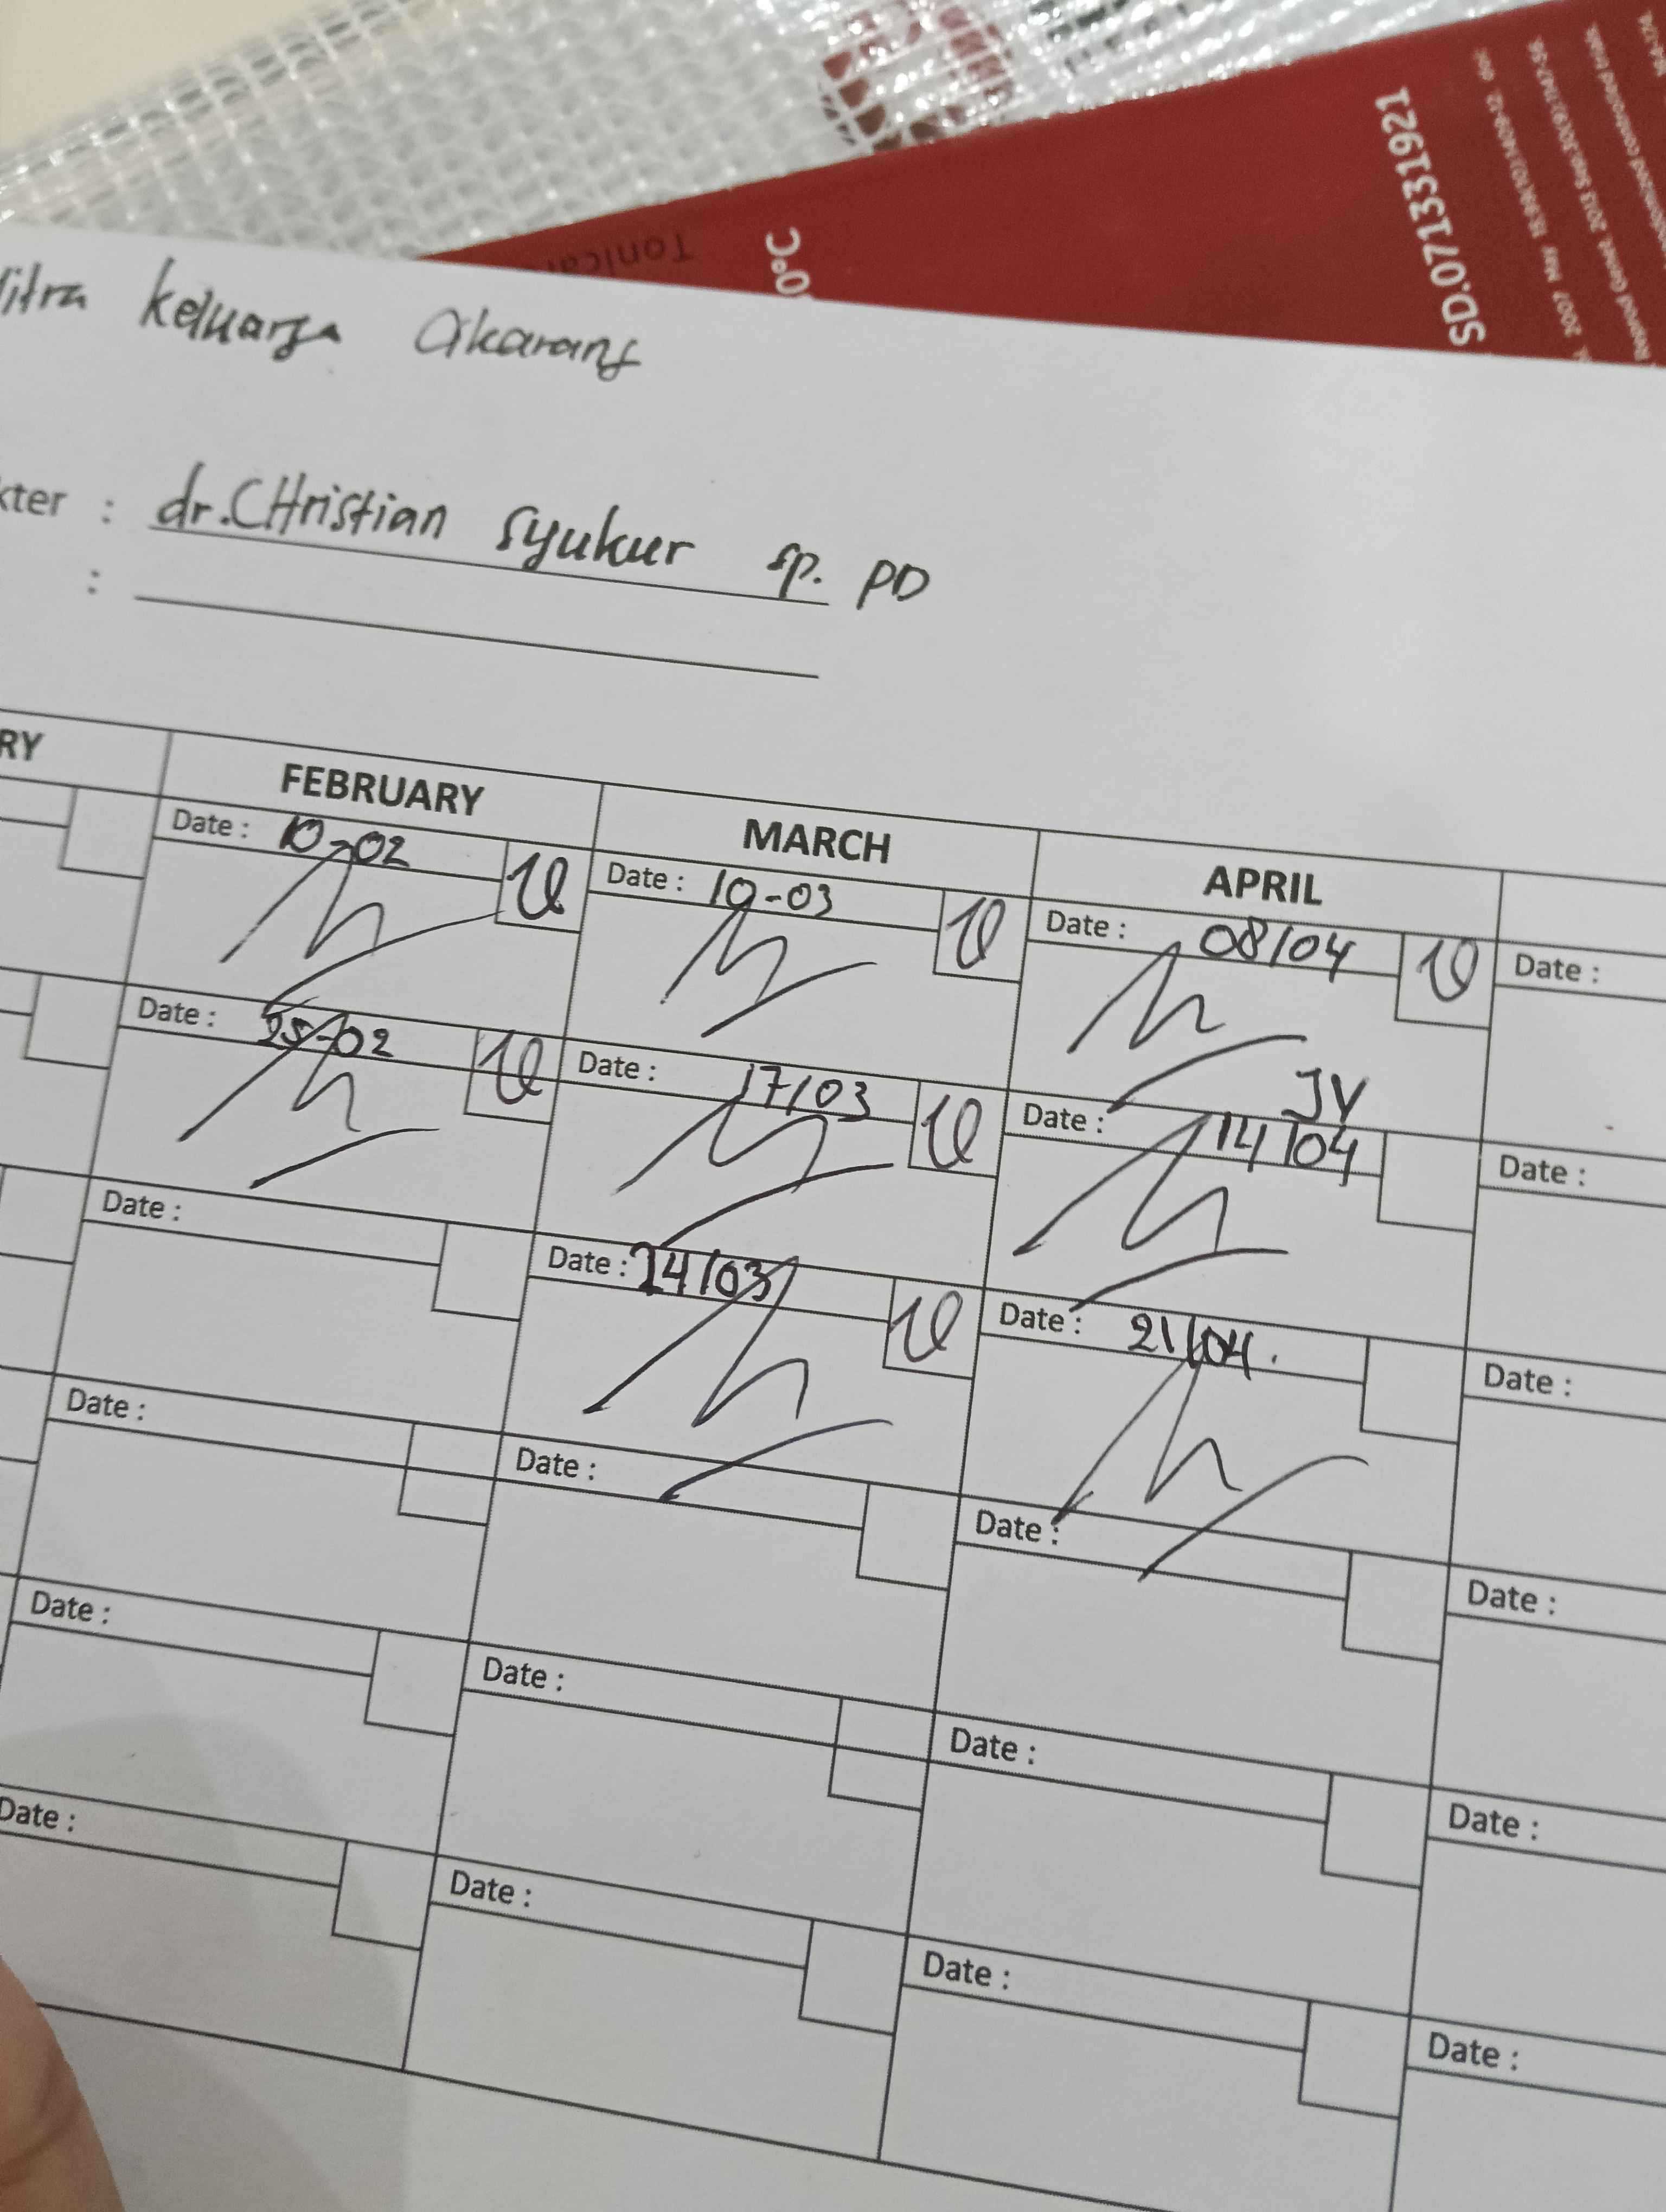 SD.071331921
Tonica
0°C
Mitra keluarga Cikarang
kter : dr.CHristian Syukur sp. PD
:
RY
FEBRUARY
MARCH
APRIL
Date : 10-02
Date : 10-03
Date : 08/04
Date :
Date : 25-02
Date : 17/03
JV
Date : 14/04
Date :
Date :
Date : 24/03
Date : 21/04.
Date :
Date :
Date :
Date :
Date :
Date :
Date :
Date :
Date :
Date :
Date :
Date :
Date :